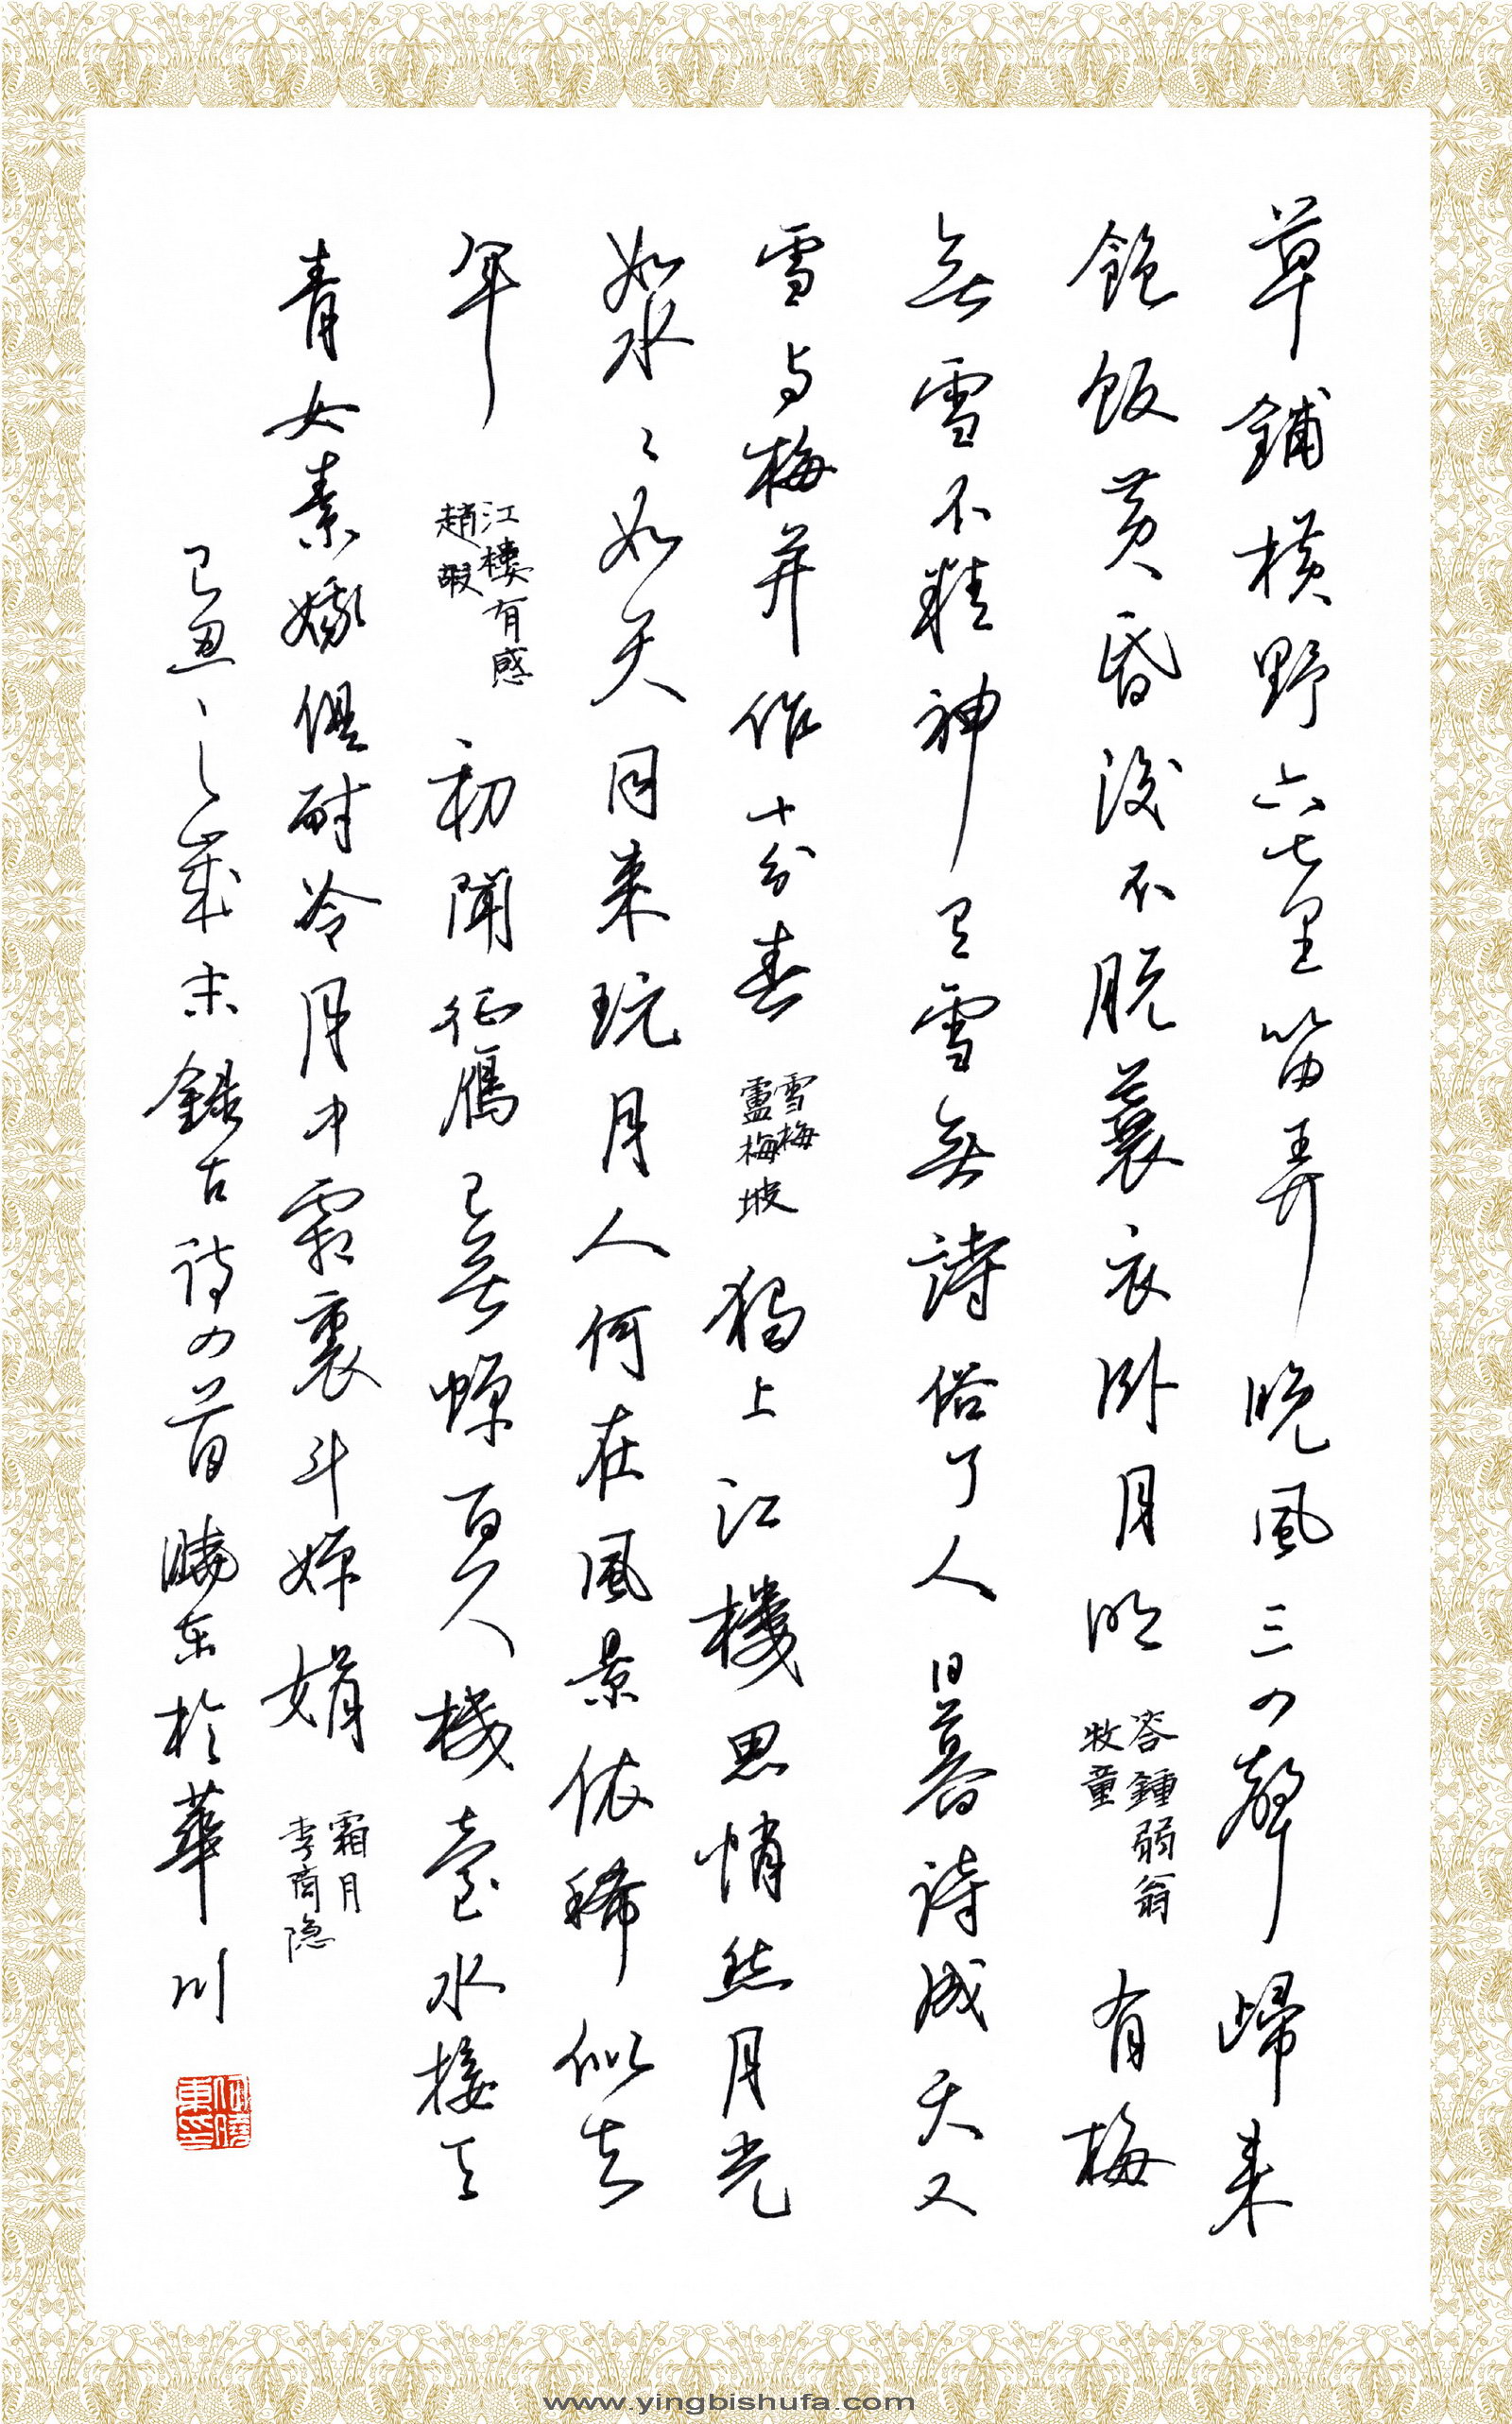 草鋪横野六七里笛弄晚風三四聲歸来
飽飯黄昏後不脱蓑衣卧月明
答鍾弱翁
牧童
有梅
無雪不精神有雪無詩俗了人日暮詩成天又
雪与梅并作十分春
雪梅
盧梅坡
獨上江樓思悄然月光
如水〻如天同来玩月人何在風景依稀似去
年
江樓有感
趙嘏
初聞征鴈已無蟬百尺樓臺水接天
青女素娥俱耐冷月中霜裏斗嬋娟
霜月
李商隐
己丑之歲末錄古詩四首曉东於華川
www.yingbishufa.com